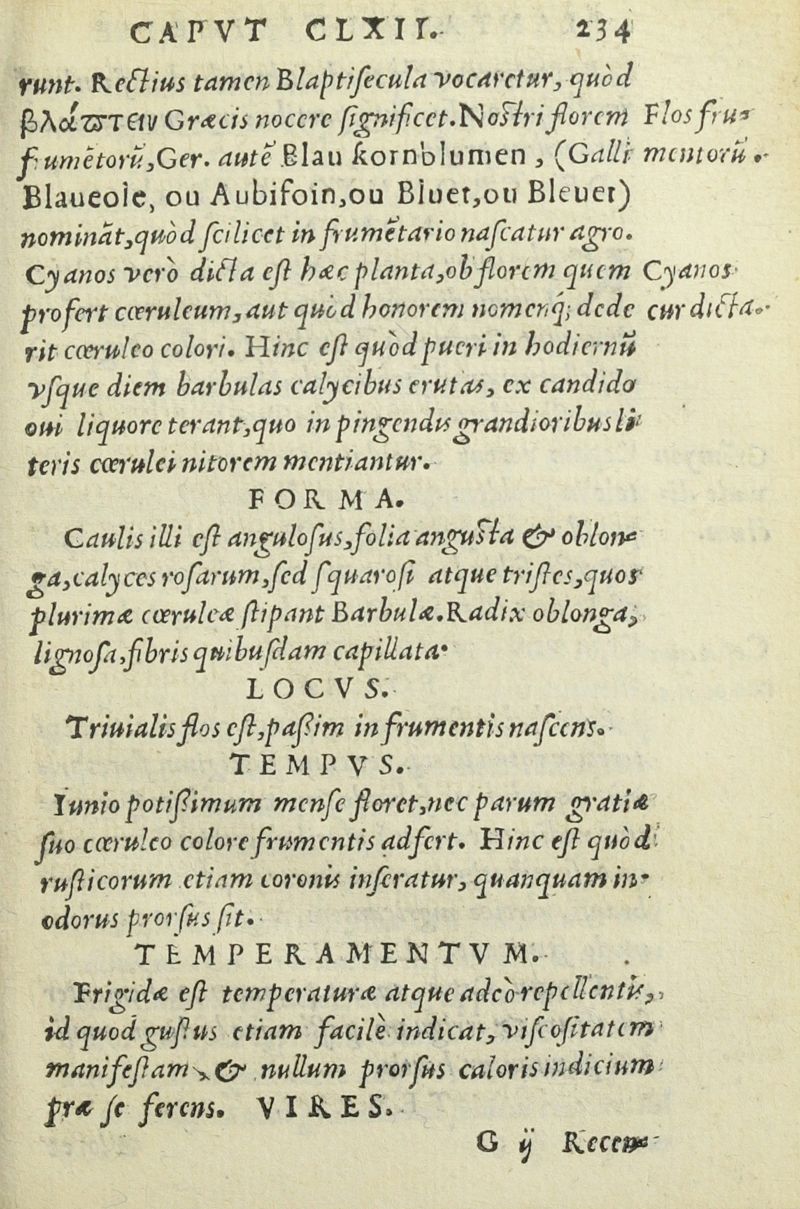 CAPVT CLXII. 234
runt. Rectius tamen Blaptisecula vocaretur, quòd
βλάπτειν Græcis nocere significet. Nostri florem
Flos fru-
frumētorū, Ger. autē Blau kornblumen, (Galli
mentorū.
Blaueole, ou Aubifoin, ou Bluet, ou Bleuet)
nominãt, quòd scilicet in frumētario nascatur agro.
Cyanos verò dicta est hæc planta, ob florem quem
Cyanos
profert cœruleum, aut quòd honorem nomenq; dede
cur dicta.
rit cœruleo colori. Hinc est quòd pueri in hodiernū
vsque diem barbulas calycibus erutas, ex candido
oui liquore terant, quo in pingendis grandioribus li-
teris cœrulei nitorem mentiantur.
FORMA.
Caulis illi est angulosus, folia angusta & oblon-
ga, calyces rosarum, sed squarosi atque tristes, quos
plurimæ cœruleæ stipant Barbulæ. Radix oblonga,
lignosa, fibris quibusdam capillata.
LOCVS.
Triuialis flos est, passim in frumentis nascens.
TEMPVS.
Iunio potissimum mense floret, nec parum gratiæ
suo cœruleo colore frumentis adfert. Hinc est quòd
rusticorum etiam coronis inseratur, quanquam in-
odorus prorsus sit.
TEMPERAMENTVM.
Frigidæ est temperaturæ atque adeò repellentis,
id quod gustus etiam facilè indicat, viscositatem
manifestam, & nullum prorsus caloris indicium
præ se ferens. VIRES.
G ij Recen-